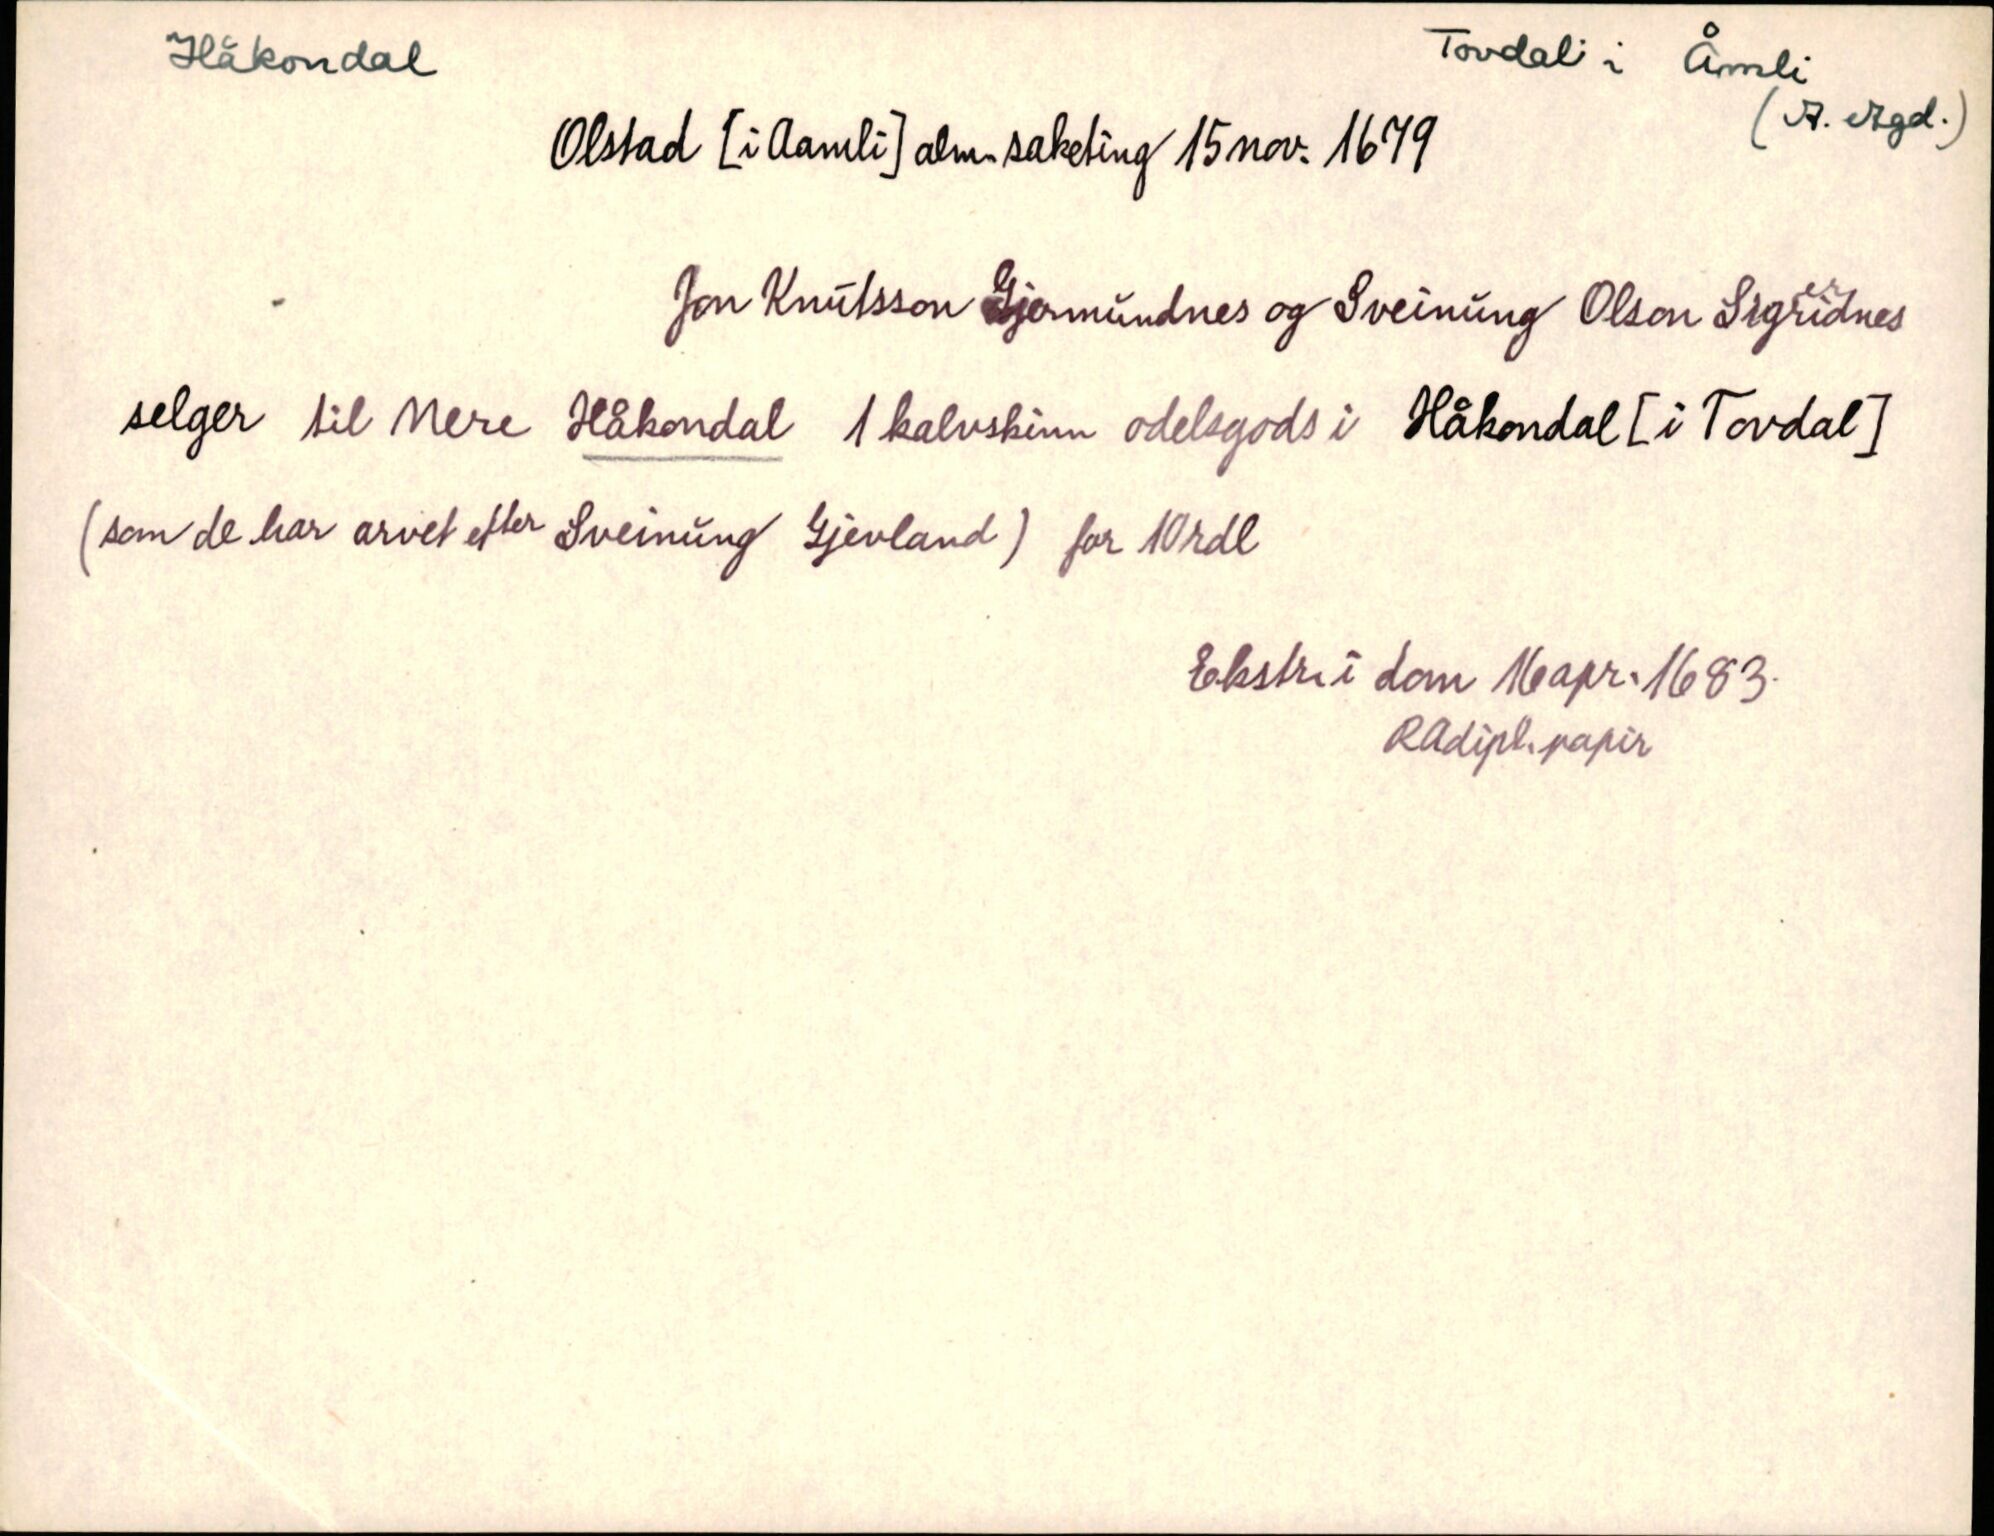 Håkondal
Tovdal i Åmli
(A. Agd.)
Olstad [i Aamli] alm. saketing 15 nov. 1679
Jon Knutsson Gjermundnes og Sveinung Olson Sigridnes
er
selger til Nere Håkondal 1 kalvskinn odelsgods i Håkondal [i Tovdal]
(som de har arvet etter Sveinung Gjevland) for 10 rdl
Ekstr. i dom 16 apr. 1683.
RAdipl. papir